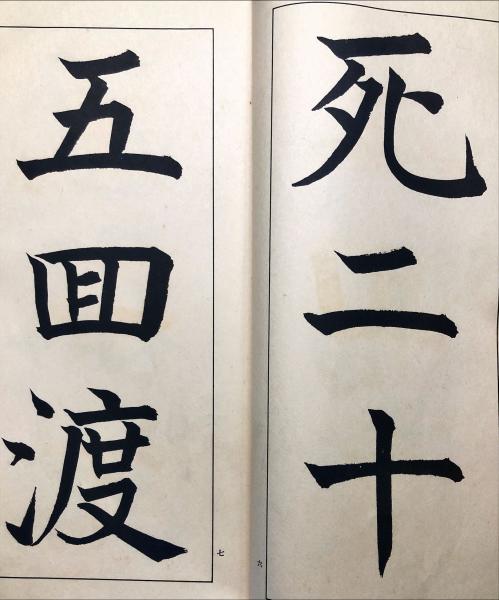 死二十
六
五囬渡
七